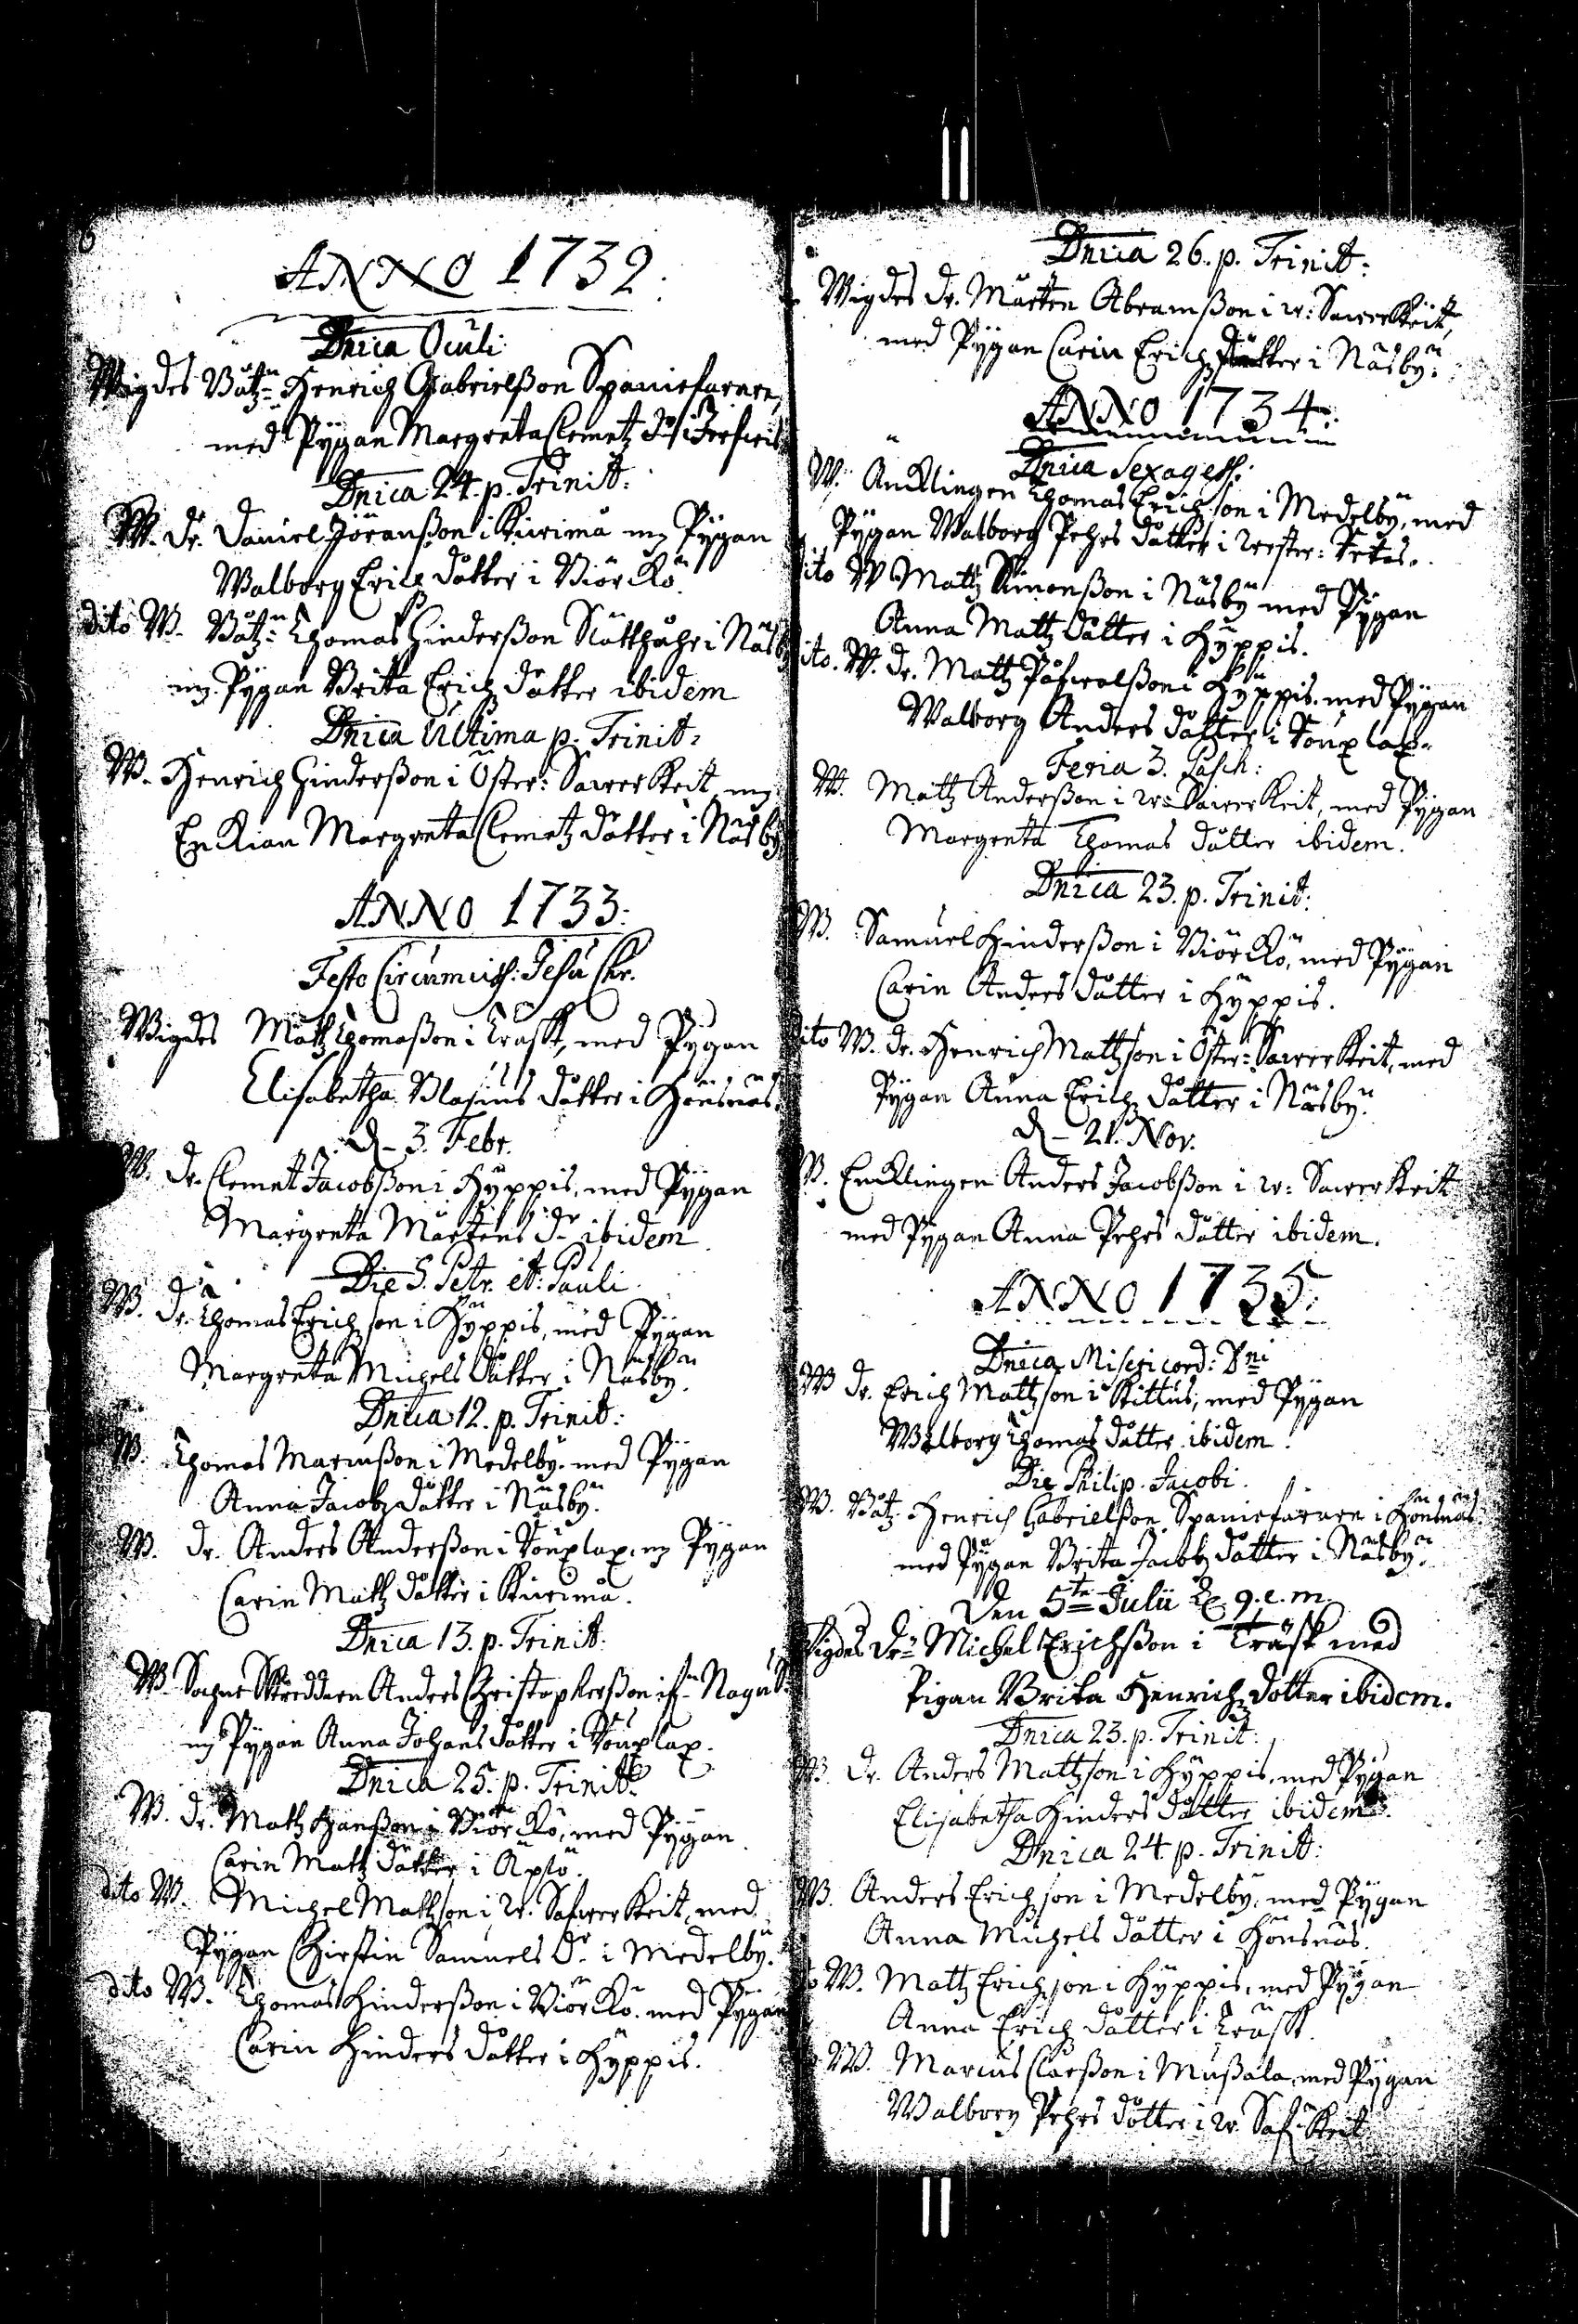 ANNO 1732.
Dnica Oculi
Wigdes Båtzn Henrich Gabrielßon Spaniefarare,
med Pÿgan Margreta Clemetz Dr i
Dnica 24. p. Trinit:
W. dr. Daniel Jöranßon i Kiurima mz Pÿgan
Walborg Erichz dåtter i Biörckö.
dito W. Båtzn Thomas Hinderßon Nätthåhr i Näsbÿ
mz Pÿgan Brita Erichz dåtter ibidem
Dnica Ultima p. Trinit:
W. Henrich Hinderßon i Öster: Sawerkeit mz
Enkian Margreta Clemetz dåtter i Näsbÿ
ANNO 1733:
Festo Circumciss: Jesu Chr.
Wigdes Matz Thomaßon i Träsk, med Pÿgan
Elisabetha Blasius dåtter i Hönsnäs.
d. 3. Febr.
W. dr. Clemet Jacobßon i Hÿppis, med Pÿgan
Margreta Mårtens dr ibidem
Die S. Petr. et: Pauli.
W. dr. Thomas Erichson i Hÿppis, med Pÿgan
Margreta Michels dåtter i Näsbÿ.
Dnica 12. p. Trinit:
W. Thomas Marcußon i Medelbÿ. med Pÿgan
Anna Jacobz dåtter i Näsbÿ.
W. dr. Anders Anderßon i Tönplax. mz Pÿgan
Carin Matz dåtter i Kiurima.
Dnica 13. p. Trinit:
W. Sochne Skreddaren Anders Christophersson ifrn Nagu S.
mz Pÿgan Anna Johans dåtter i Tönplax.
Dnica 25. p. Trinit:
W. dr. Matz Hanßon i Biörckö, med Pÿgan
Carin Matz dåtter i Äplö.
dito W. Michel Matzson i W. Safwerkeit, med
Pÿgan Chirstin Samuels dr. i Medelbÿ.
dito W. Thomas Hinderßon i Biörckö. med Pÿgan
Carin Hinders dåtter i Hÿppis.
Dnica 26. p. Trinit:
Wigdes dr. Mårten Abramßon i w: Sawerkeit,
med Pÿgan Carin Erichz dåtter i Näsbÿ.
ANNO 1734.
Dnica Sexagess:
W. Ancklingen Thomas Erichson i Medelbÿ, med
Pÿgan Walborg Pehrs dåtter i Wester:
ito W Matz Simonßon i Näsbÿ med Pÿgan
Anna Matz dåtter i Hÿppis.
ito. W. dr. Matz Påfwalßon i Hÿppis. med Pÿgan
Walborg Anders dåtter i Tönplax.
Feria 3. Pasch:
W. Matz Anderßon i w: Sawerkeit, med Pÿgan
Margreta Thomas dåtter ibidem.
Dnica 23. p. Trinit:
W. Samuel Hinderßon i Biörckö, med Pÿgan
Carin Anders dåtter i Hÿppis.
dito W. dr. Henrich Matzson i Öster: Sawerkeit, med
Pÿgan Anna Erichz dåtter i Näsbÿ.
d. 21. Nov.
W. Encklingen Anders Jacobßon i w: Sawerkeit
med Pÿgan Anna Pehrs dåtter ibidem.
ANNO 1735.
Dnica Misericord: Dni
W dr. Erich Matzson i Kittus, med Pÿgan
Walborg Thomas dåtter ibidem.
Die Philip. Jacobi.
W. Båtz. Henrich Gabrielßon Spaniefarare i Hönsnäs.
med Pÿgan Brita Jacobz dåtter i Näsbÿ.
Den 5te Julii
Wigdes drn Michel Erichßon i Träsk med
Pigan Brita Henrichz dotter ibidem.
Dnica 23. p. Trinit:
W. dr. Anders Matzson i Hÿppis, med Pÿgan
Elisabetha Hinders dåtter ibidem.
Dnica 24. p. Trinit:
W. Anders Erichson i Medelbÿ, med Pÿgan
Anna Michels dåtter i Hönsnäs.
to W. Matz Erichson i Hÿppis, med Pÿgan
Anna Erichz dåtter i Träsk.
W. Marcus Claeßon i Mußala, med Pÿgan
Walborg Pehrs dåtter i W. Saf:keit